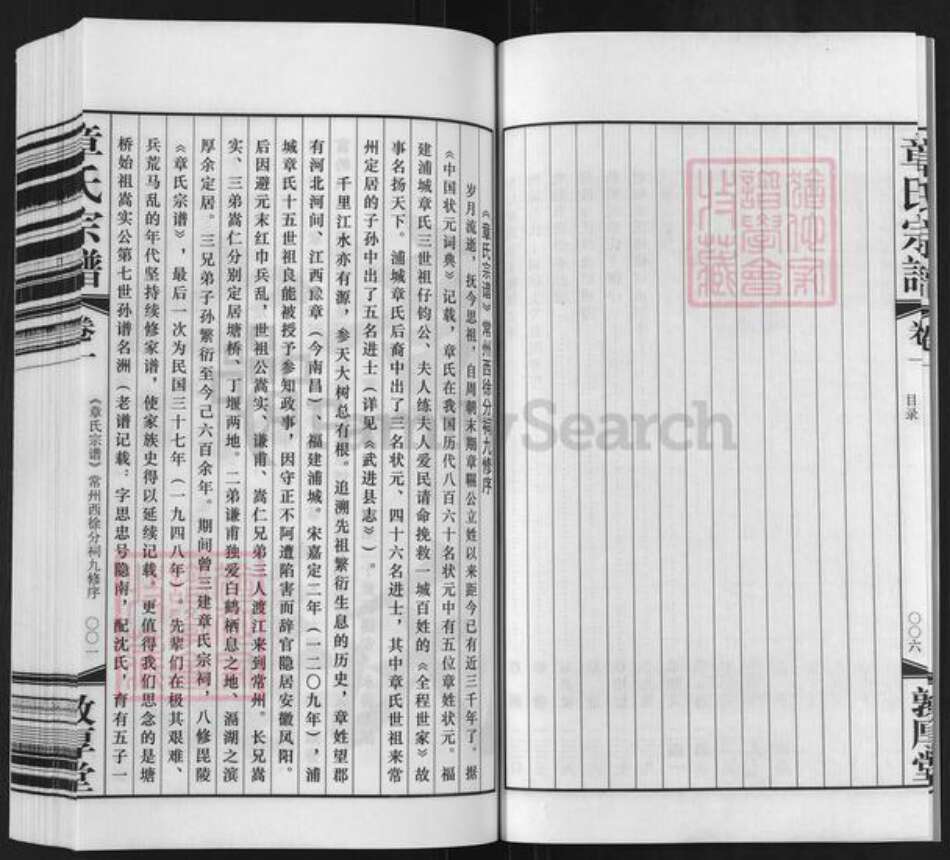 章氏宗譜
卷一
目录
〇〇六
敦厚堂
譜學會
收藏
《章氏宗谱》常州西徐分祠九修序
岁月流逝，抚今思祖，自周朝末期章韅公立姓以来距今已有近三千年了。据
《中国状元词典》记载，章氏在我国历代八百六十名状元中有五位章姓状元。福
建浦城章氏三世祖仔钧公、夫人练夫人爱民请命挽救一城百姓的《全程世家》故
事名扬天下。浦城章氏后裔中出了三名状元、四十六名进士，其中章氏世祖来常
州定居的子孙中出了五名进士（详见《武进县志》）。
千里江水亦有源，参天大树总有根。追溯先祖繁衍生息的历史，章姓望郡
有河北河间、江西豫章（今南昌）、福建浦城。宋嘉定二年（一二〇九年），浦
城章氏十五世祖良能被授予参知政事，因守正不阿遭陷害而辞官隐居安徽凤阳。
后因避元末红巾兵乱，世祖公嵩实、谦甫、嵩仁兄弟三人渡江来到常州。长兄嵩
实、三弟嵩仁分别定居塘桥、丁堰两地。二弟谦甫独爱白鹤栖息之地、滆湖之滨
厚余定居。三兄弟子孙繁衍至今己六百余年。期间曾三建章氏宗祠，八修毘陵
《章氏宗谱》，最后一次为民国三十七年（一九四八年）。先辈们在极其艰难、
兵荒马乱的年代坚持续修家谱，使家族史得以延续记载。更值得我们思念的是塘
桥始祖嵩实公第七世孙谱名洲（老谱记载：字思忠号隐南，配沈氏，育有五子一
章氏宗谱
卷一
《章氏宗谱》常州西徐分祠九修序
〇〇一
敦厚堂
FamilySearch